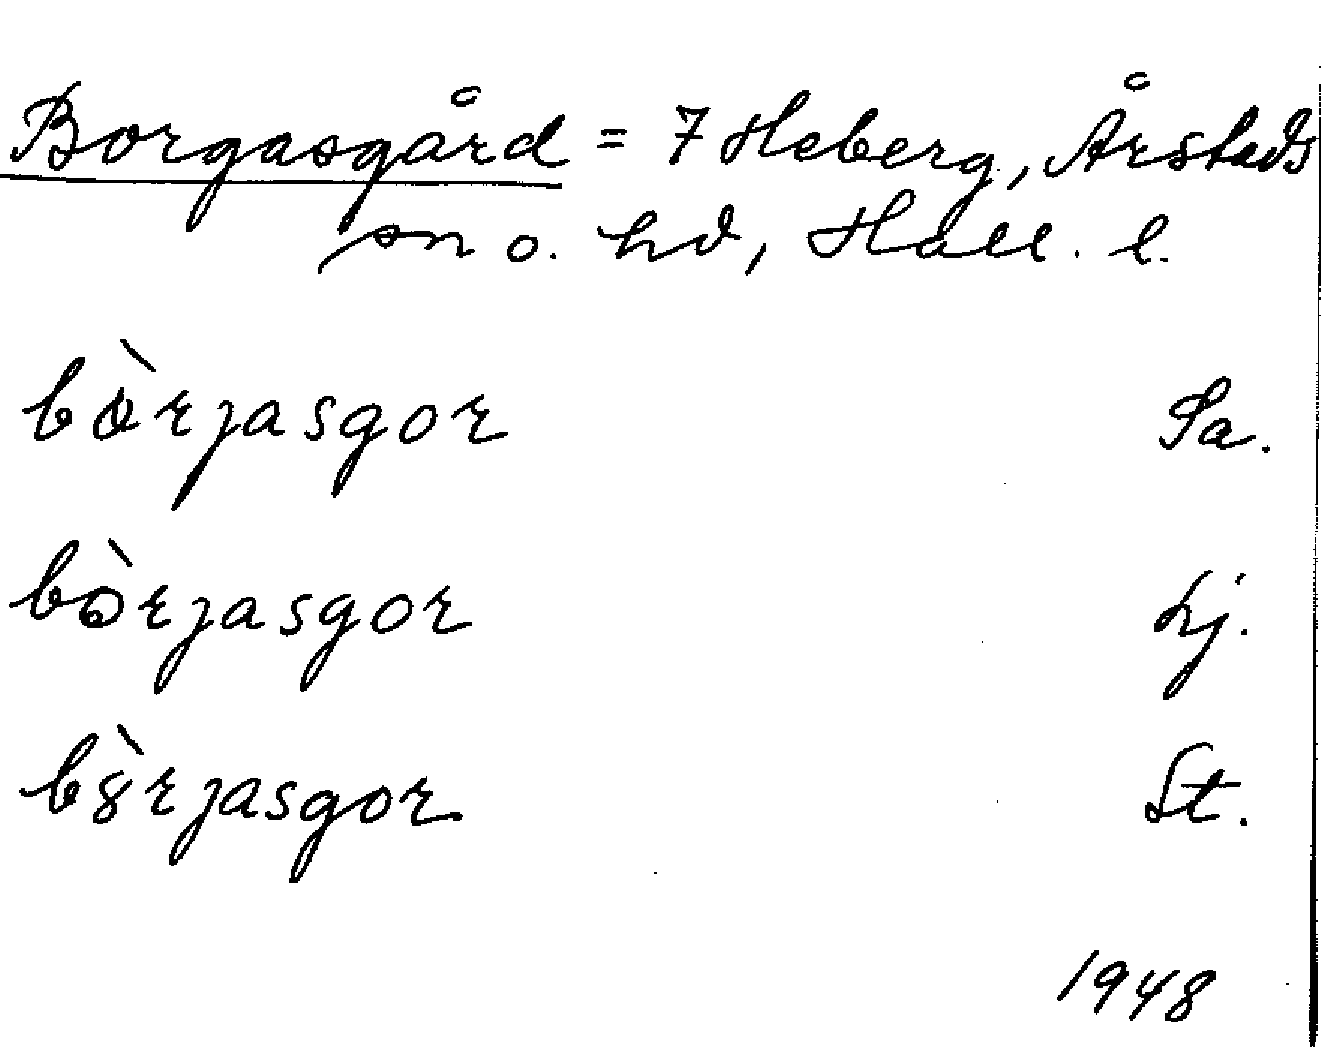 Borgasgård = 7 Heberg, Årstads
sn o. hd, Hall. l.
bòrjasgor Sa.
bòrjasgor Lj.
bèrjasgor St.
1948